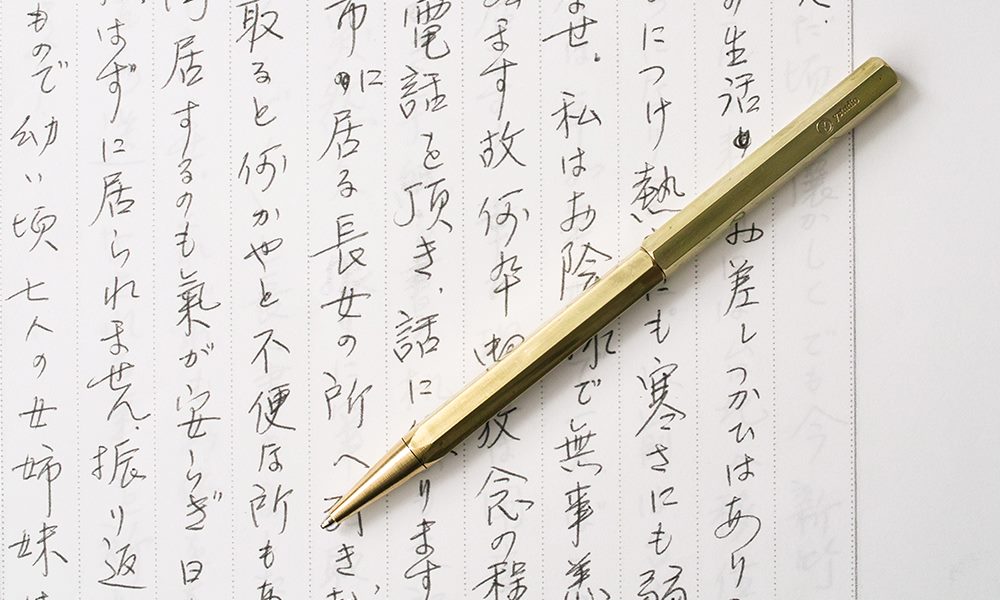 の生活のお差しつかひはあり
につけ熱にも寒さにも弱
せ。私はお陰で無事
ます故何卒放念の程
電話を頂き、話にります
市に居る長女の所へき
取ると何かやと不便な所もあ
居するのも氣が安らぎ日
はずに居られません。振り返
もので幼い頃七人の女姉妹は
ystudio